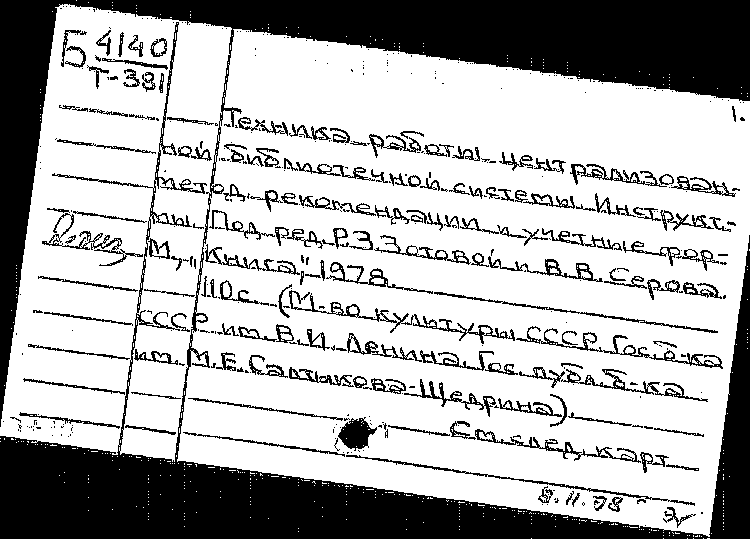 Б 4140
Т-381
1.
Техника работы централизован-
ной библиотечной системы. Инструкт.-
метод. рекомендации и учетные фор-
мы. Под ред. Р.З.Зотовой и В.В.Серова.
М., „Книга", 1978.
110с. (М-во культуры СССР. Гос. б-ка
СССР им. В.И.Ленина. Гос. публ. б-ка
им. М.Е.Салтыкова-Щедрина).
См. след. карт
9.11.78